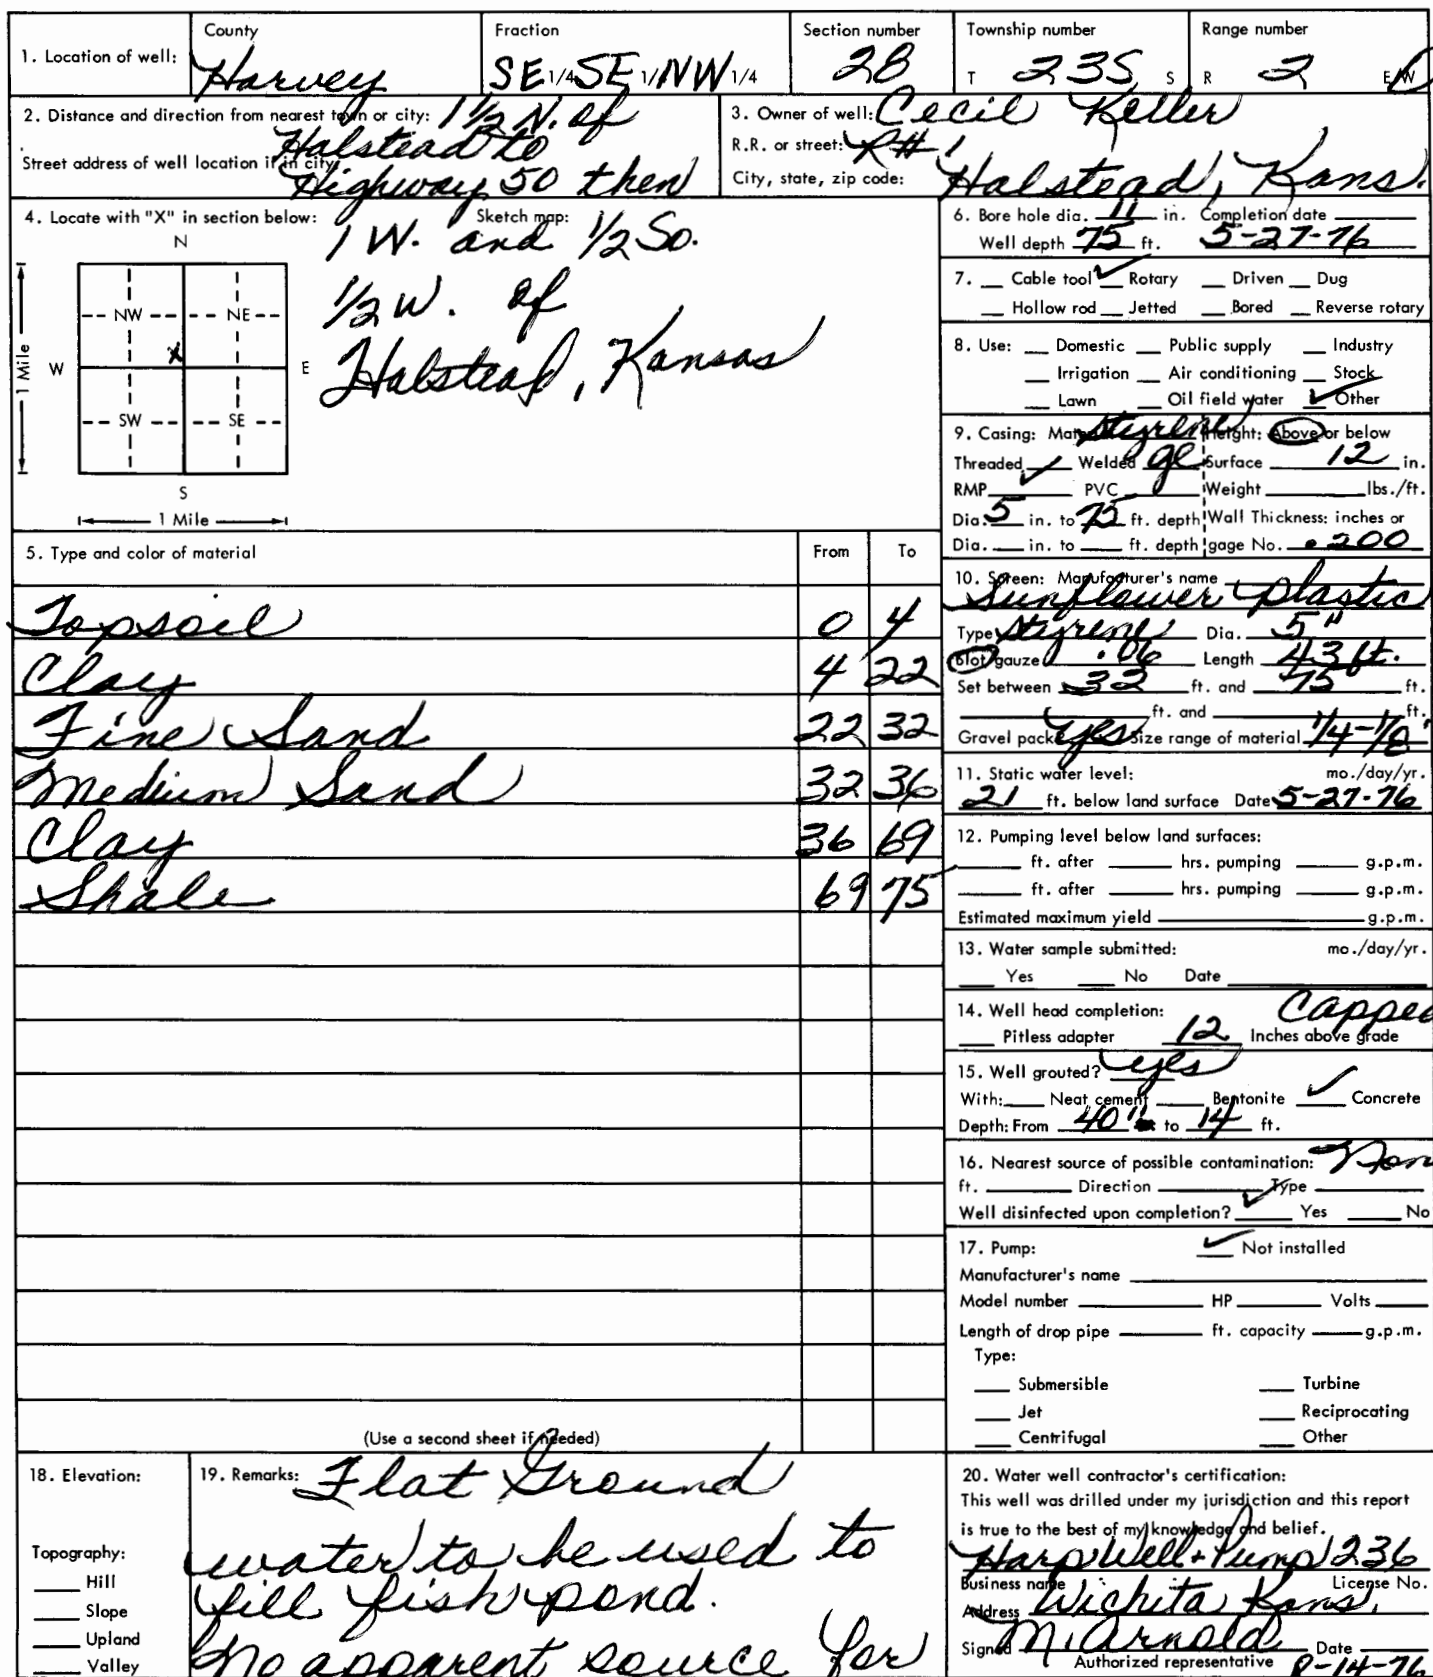 1. Location of well: County Harvey Fraction SE 1/4 SE 1/4 NW 1/4 Section number 28 Township number T 23S S Range number R 2 E/W
2. Distance and direction from nearest town or city: 1 1/2 N. of
Halstead to
Street address of well location if in city:
Highway 50 then
3. Owner of well: Cecil Keller
R.R. or street: R#1
City, state, zip code: Halstead, Kans.
4. Locate with "X" in section below: Sketch map:
1 W. and 1/2 So.
1/2 W. of
Halstead, Kansas
N
NW NE
X
W E
SW SE
S
1 Mile
1 Mile
5. Type and color of material From To
Topsoil 0 4
Clay 4 22
Fine Sand 22 32
Medium Sand 32 36
Clay 36 69
Shale 69 75
(Use a second sheet if needed)
6. Bore hole dia. 11 in. Completion date
Well depth 75 ft. 5-27-76
7. Cable tool ✓ Rotary Driven Dug
Hollow rod Jetted Bored Reverse rotary
8. Use: Domestic Public supply Industry
Irrigation Air conditioning Stock
Lawn Oil field water ✓ Other
9. Casing: Styrene Height: Above or below
Threaded Welded Surface 12 in.
RMP ✓ PVC Weight lbs./ft.
Dia. 5 in. to 75 ft. depth Wall Thickness: inches or
Dia. in. to ft. depth gage No. .200
10. Screen: Manufacturer's name
Sunflower Plastic
Type Styrene Dia. 5"
Slot/gauze .06 Length 43 ft.
Set between 32 ft. and 75 ft.
ft. and ft.
Gravel pack yes Size range of material 1/4-1/8"
11. Static water level: mo./day/yr.
21 ft. below land surface Date 5-27-76
12. Pumping level below land surfaces:
ft. after hrs. pumping g.p.m.
ft. after hrs. pumping g.p.m.
Estimated maximum yield g.p.m.
13. Water sample submitted: mo./day/yr.
Yes No Date
14. Well head completion: Capped
Pitless adapter 12 Inches above grade
15. Well grouted? yes
With: Neat cement Bentonite ✓ Concrete
Depth: From 40" to 14 ft.
16. Nearest source of possible contamination: Non
ft. Direction Type
Well disinfected upon completion? ✓ Yes No
17. Pump: ✓ Not installed
Manufacturer's name
Model number HP Volts
Length of drop pipe ft. capacity g.p.m.
Type:
Submersible Turbine
Jet Reciprocating
Centrifugal Other
18. Elevation:
Topography:
Hill
Slope
Upland
Valley
19. Remarks: Flat Ground
water to be used to
fill fish pond.
No apparent source for
20. Water well contractor's certification:
This well was drilled under my jurisdiction and this report
is true to the best of my knowledge and belief.
Harp Well + Pump 236
Business name License No.
Address Wichita Kans.
Signed M. Arnold Date
Authorized representative 8-14-76